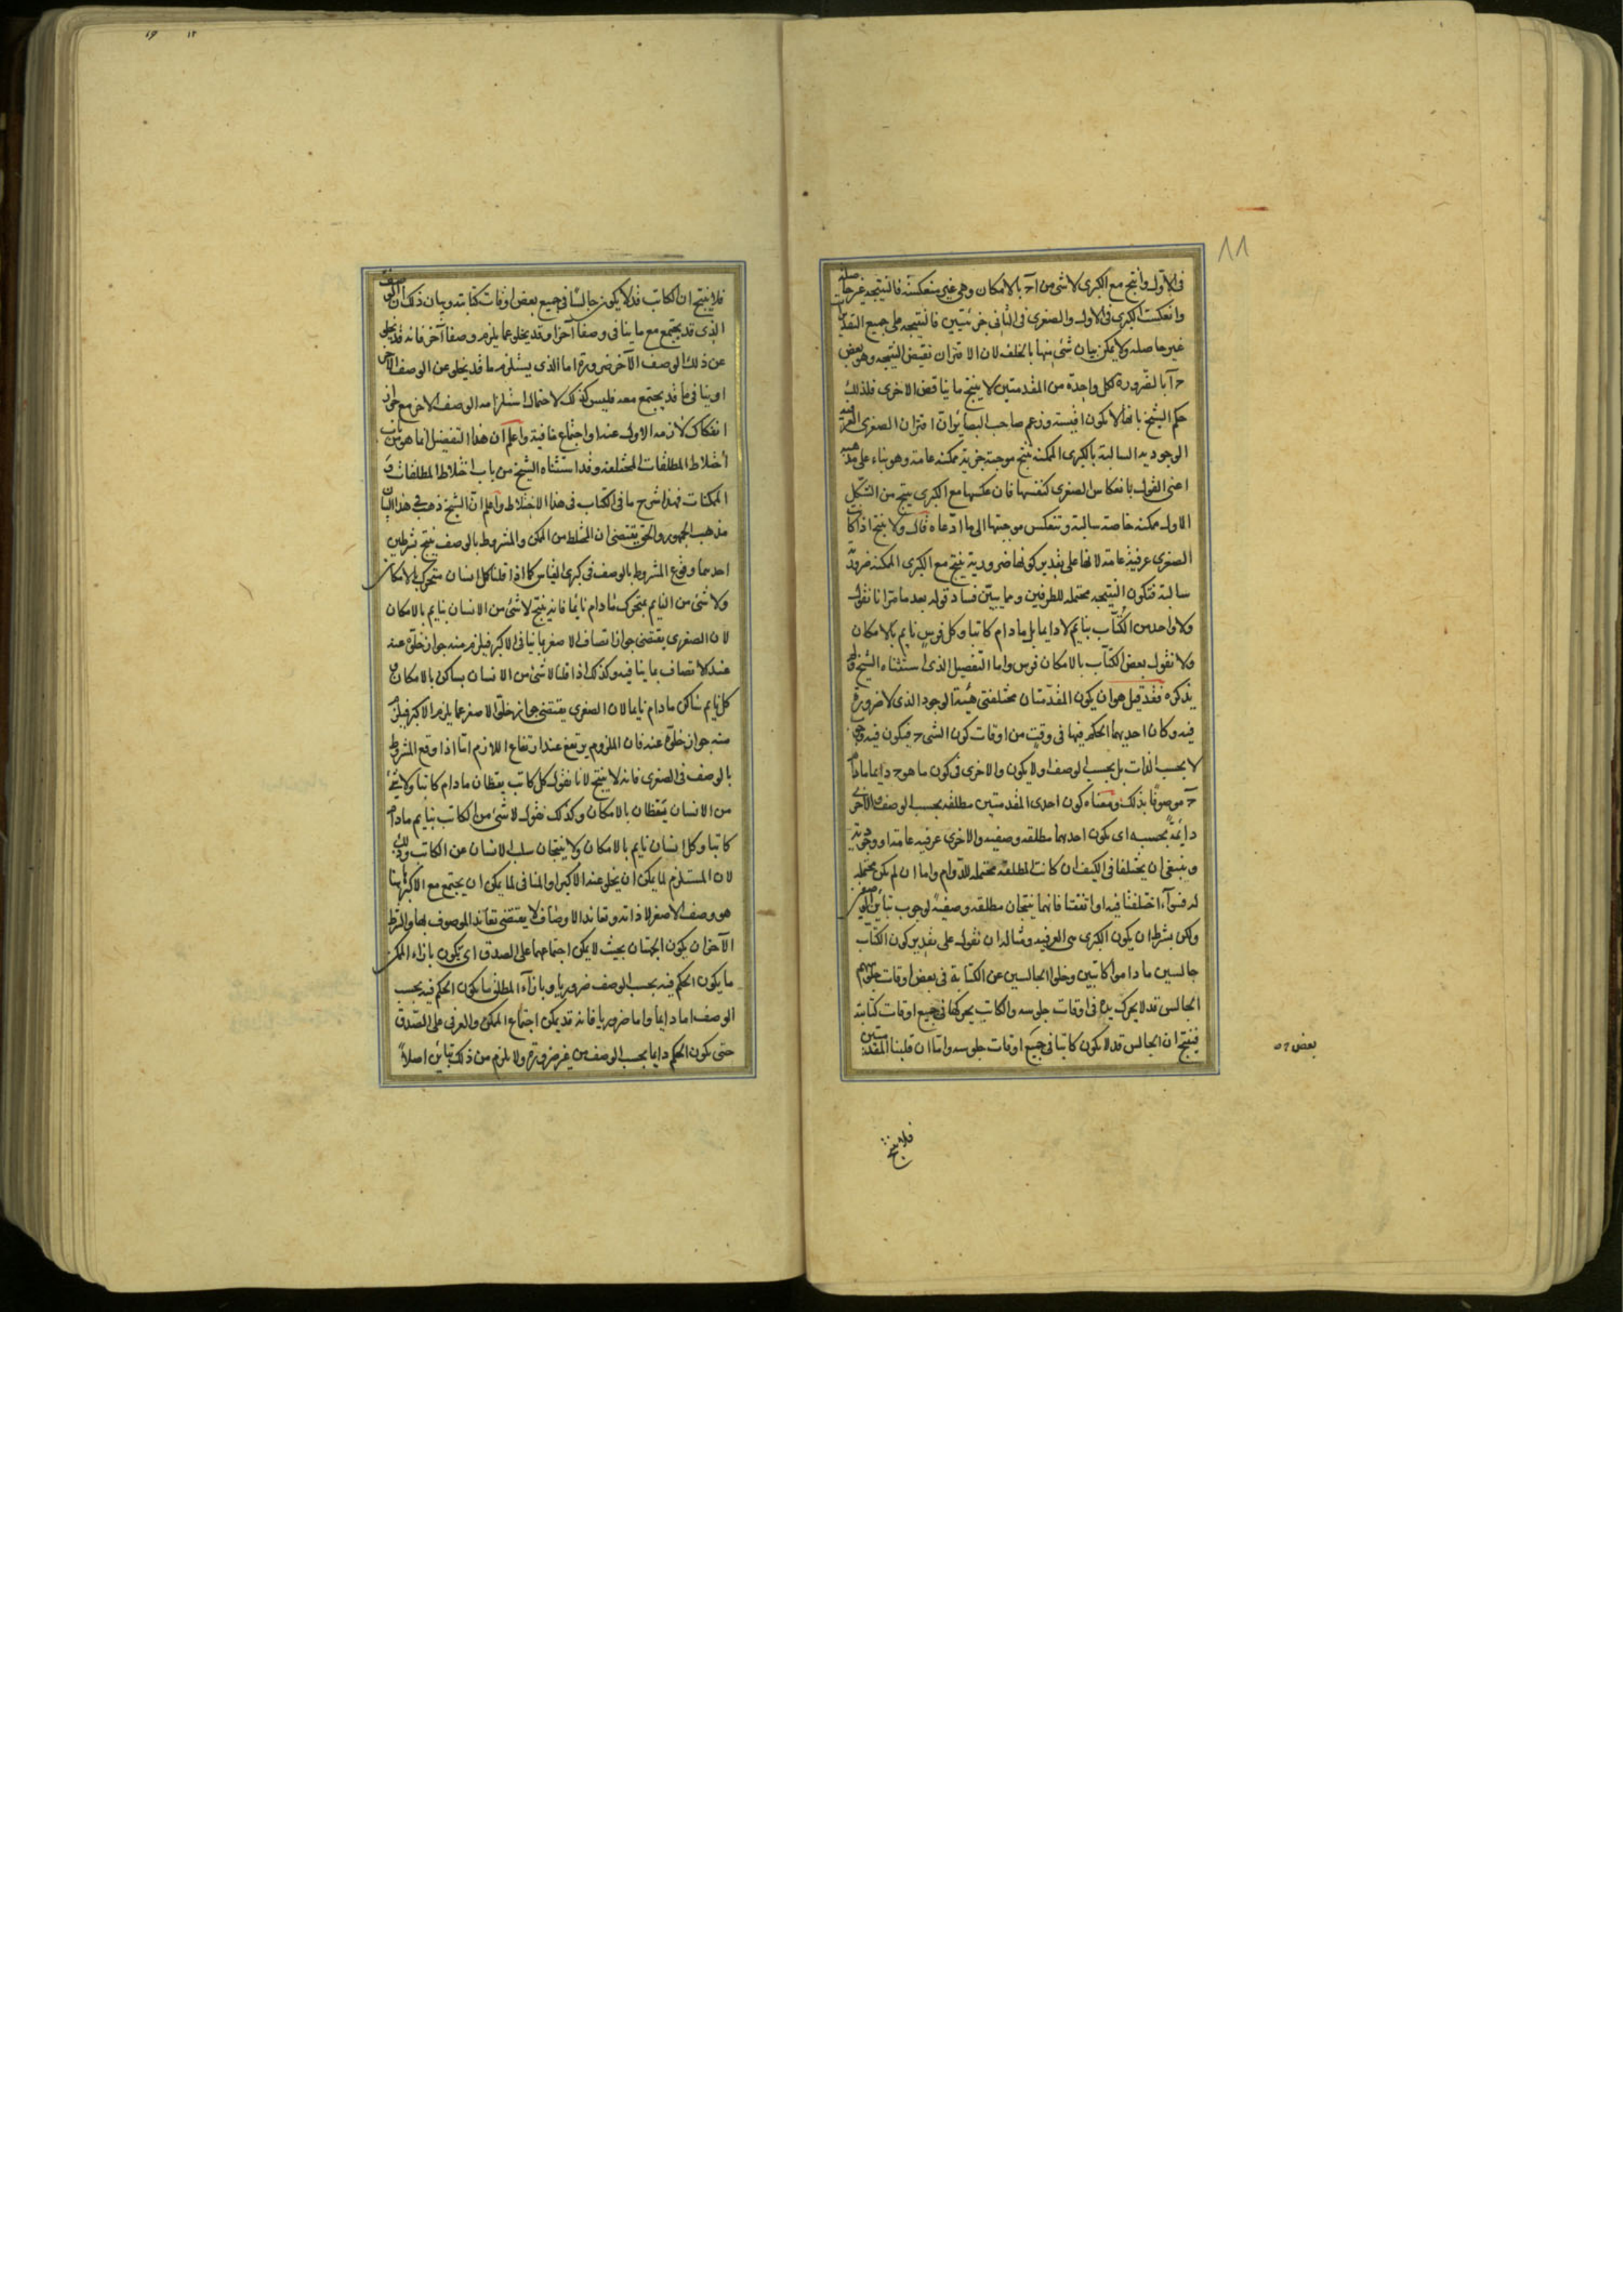 ٨٨
فى الاول وانتج مع الكبرى لا شئ من ا حـ بالامكان وهى غير منعكسة فالنتيجه غير حاصله
وانعكست الكبرى فى الاول والصغرى فى الثانى جزئيتين فالنتيجه على جميع التقديرات
غير حاصله ولا يمكن بيان شئ منها بالخلف لان الاقتران نقيض النتيجه وهو بعض
حـ ا بالضرورة لكل واحدة من المقدمتين لا ينتج ما يناقض الاخرى فلذلك
حكم الشيخ بانها لا يكون اقيسة وزعم صاحب البصائر ان اقتران الصغرى العرفية
الوجودية السالبة بالكبرى الممكنه ينتج موجبة جزئية ممكنه عامة وهو بناء على مذهبه
اعنى القول بانعكاس الصغرى كنفسها فان عكسها مع الكبرى ينتج من الشكل
الاول ممكنه خاصة سالبة وتنعكس موجبتها الى ما ادعاه قال ولا ينتج اذا كانت
الصغرى عرفية عامة لانها على تقدير كونها ضرورية ينتج مع الكبرى الممكنه ضرورية
سالبة فتكون النتيجه محتمله للطرفين ومما يبين فساد قوله بعد ما مر انا نقول
ولا واحد من الكتاب بنايم لا دايما بل ما دام كاتبا وكل فرس نايم بالامكان
ولا نقول بعض الكتاب بالامكان فرس واما التفصيل الذى استثناه الشيخ ولم
يذكره فقد قيل هو ان يكون المقدمتان مختلفتى هيئة الوجود الذى لا ضرورة
فيه وكان احديهما الحكم فيها فى وقت من اوقات كون الشى حـ فيكون فيه
لا بحسب الذات بل بحسب الوصف او لا يكون والاخرى فى كون ما هو حـ دايما مادام
حـ موصوفا بذلك ومعناه كون احدى المقدمتين مطلقه بحسب الوصف والاخرى
دائمة بحسبه اى يكون احدهما مطلقه وصفيه والاخرى عرفيه عامة او وجودية
وينبغى ان يختلفا فى الكيف ان كانت المطلقه محتمله للدوام واما ان لم يكن محتمله
له فسواء اختلفتا فيه او اتفقتا فانهما ينتجان مطلقه وصفية لوجوب تباين
ولكن بشرط ان يكون الكبرى هى العرفيه ومثاله ان نقول على تقدير كون الكتاب
جالسين ما داموا كاتبين وخلوا الجالسين عن الكتابة فى بعض اوقات جلوسهم
الجالس قد لا يحرك يده فى اوقات جلوسه والكاتب يحركها فى جميع اوقات كتابته
فينتج ان الجالس قد لا يكون كاتبا فى جميع اوقات جلوسه واما ان قلبنا المقدمتين
بعض
فلا ينتج
فلا ينتج ان الكاتب قد لا يكون جالسا فى جميع بعض اوقات كتابته وبيان ذلك ان الوصف
الذى قد يجتمع مع ما ينافى وصفا آخر او قد يخلو عما يلزم وصفا آخر فانه قد يخلو
عن ذلك الوصف الآخر ضرورة اما الذى يستلزمه ما قد يخلو عن الوصف الآخر
او ينافى ما قد يجتمع معه فليس كذلك لاحتمال استلزامه الوصف الاخر مع جواز
انفكاك لازمه الاول عنه او اجتماع منافيه واعلم ان هذا التفصيل انما هو من باب
اختلاط المطلقات المختلفة وقد استثناه الشيخ من باب اختلاط المطلقات و
الممكنات فهذا شرح ما فى الكتاب فى هذا الاختلاط واعلم ان الشيخ ذهب فى هذا الباب
مذهب الجمهور والحق يقتضى ان المختلط من الممكن والمشروط بالوصف ينتج بشرطين
احدهما وقوع المشروط بالوصف فى كبرى القياس كما اذا قلنا كل انسان متحرك بالامكان
ولا شئ من النايم بمتحرك ما دام نائما فانه ينتج لا شئ من الانسان بنايم بالامكان
لان الصغرى يقتضى جواز اتصاف الاصغر بما ينافى الاكبر فيلزم منه جواز خلوه عنه
عند الاتصاف بما ينافيه وكذلك اذا قلنا لا شئ من الانسان بساكن بالامكان و
كل نايم ساكن ما دام نايما لان الصغرى يقتضى جواز خلو الاصغر عما يلزم الاكبر فيلزم
منه جواز خلوه عنه فان الملزوم يرتفع عند ارتفاع اللازم اما اذا وقع المشروط
بالوصف فى الصغرى فانه لا ينتج لانا نقول كل كاتب يقظان ما دام كاتبا ولا شئ
من الانسان بيقظان بالامكان وكذلك نقول لا شئ من الكاتب بنايم مادام
كاتبا وكل انسان نايم بالامكان ولا ينتجان سلب الانسان عن الكاتب وذلك
لان المستلزم لما يمكن ان يخلو عنه الاكبر او المنافى لما يمكن ان يجتمع مع الاكبر هيهنا
هو وصف الاصغر لا ذاته وتعاند الاوصاف لا يقتضى تعاند الموصوف بها والشرط
الآخر ان يكون الجهتان بحيث لا يمكن اجتماعهما على الصدق اى يكون بازاء الممكن
ما يكون الحكم فيه بحسب الوصف ضروريا وبازاء المطلق ما يكون الحكم فيه بحسب
الوصف اما دايما واما ضروريا فانه قد يمكن اجتماع الممكن والعرفى على الصدق
حتى يكون الحكم دايما بحسب الوصف من غير ضرورة ولا يلزم من ذلك تباين اصلا